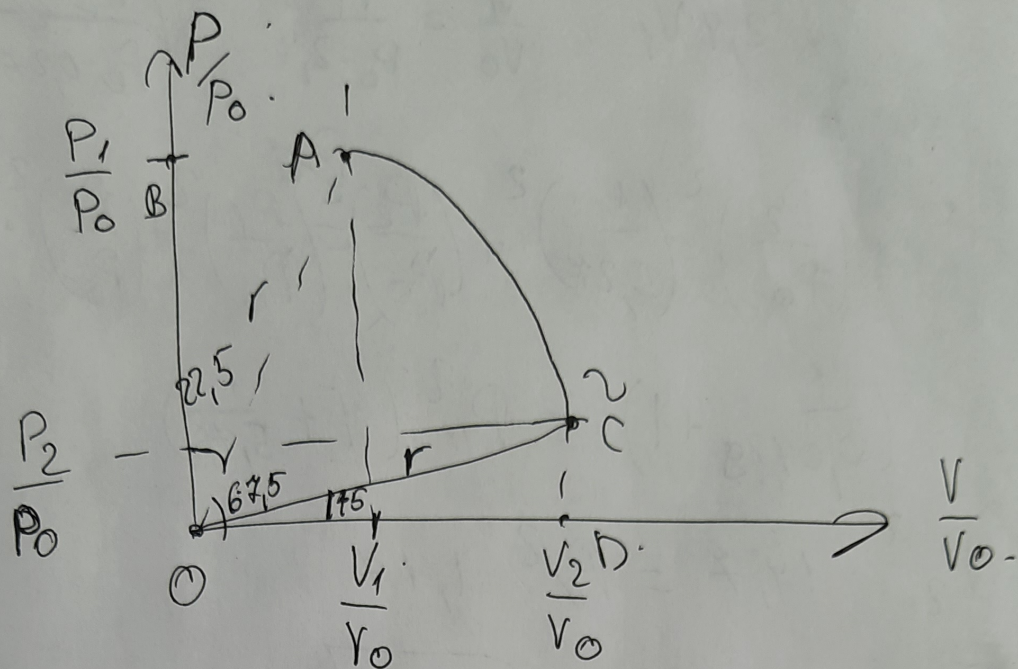 P/P₀
P₁/P₀
B
A
1
r
22,5
P₂/P₀
67,5
r
2
C
O
V₁/V₀
V₂/V₀
D
V/V₀